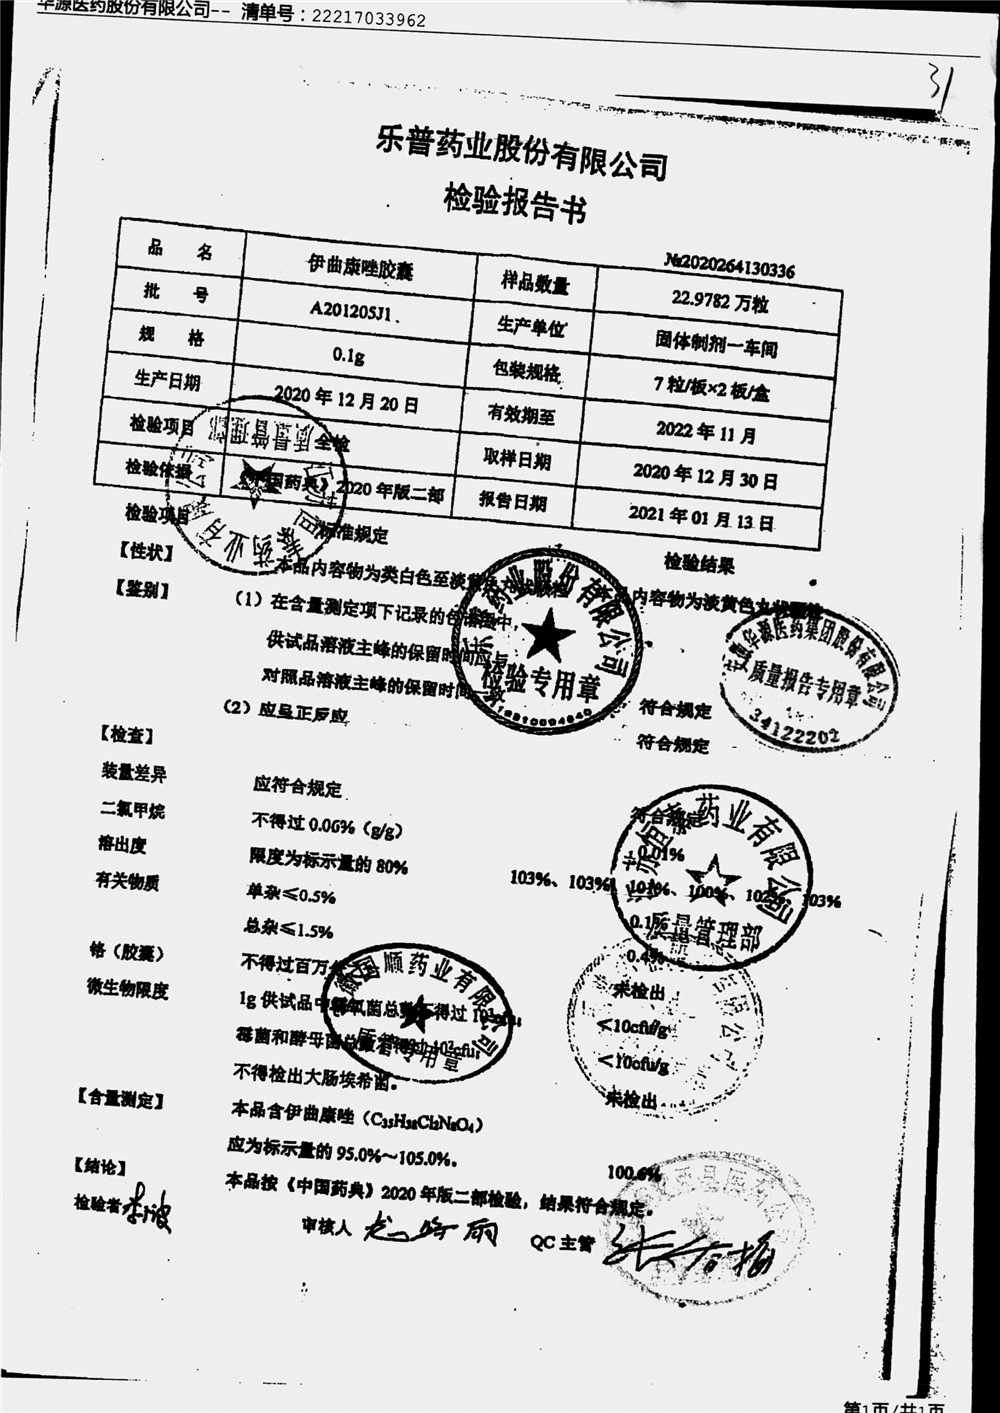 华源医药股份有限公司-- 清单号：22217033962
31
乐普药业股份有限公司
检验报告书
№2020264130336
品 名 伊曲康唑胶囊 样品数量 22.9782 万粒
批 号 A201205J1 生产单位 固体制剂一车间
规 格 0.1g 包装规格 7 粒/板×2 板/盒
生产日期 2020 年 12 月 20 日 有效期至 2022 年 11 月
检验项目 全检 取样日期 2020 年 12 月 30 日
检验依据 《中国药典》2020 年版二部 报告日期 2021 年 01 月 13 日
检验项目 标准规定 检验结果
【性状】 本品内容物为类白色至淡黄 内容物为淡黄色
【鉴别】 （1）在含量测定项下记录的色谱图中，
供试品溶液主峰的保留时间应与
对照品溶液主峰的保留时间 符合规定
（2）应呈正反应 符合规定
【检查】
装量差异 应符合规定 符合规定
二氯甲烷 不得过 0.06%（g/g） 0.01%
溶出度 限度为标示量的 80% 103%、103%、101%、100%、102%、103%
有关物质 单杂≤0.5% 0.1%
总杂≤1.5% 0.4%
铬（胶囊） 不得过百万分 未检出
微生物限度 1g 供试品中需氧菌总数不得过 10³cfu； <10cfu/g
霉菌和酵母菌总数不得过 10²cfu； <10cfu/g
不得检出大肠埃希菌。 未检出
【含量测定】 本品含伊曲康唑（C₃₅H₃₈Cl₂N₈O₄）
应为标示量的 95.0%～105.0%。 100.6%
【结论】 本品按《中国药典》2020 年版二部检验，结果符合规定。
检验者 李波 审核人 QC 主管
药业股份有限公司
检验专用章
华源医药集团股份有限公司
质量报告专用章
34122202
药业有限公司
质量管理部
国顺药业有限公司
质管专用章
质量管理部
第1页/共1页